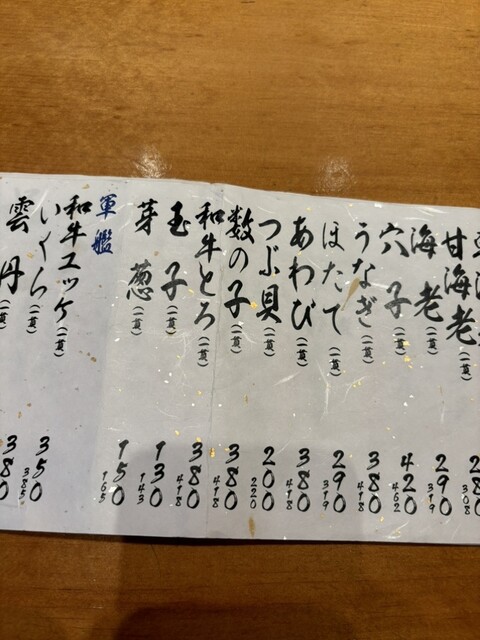 甘海老 280 308
海老(一貫) 290 319
穴子(一貫) 420 462
うなぎ(一貫) 380 418
ほたて(一貫) 290 319
あわび(一貫) 380 418
つぶ貝(一貫) 200 220
数の子(一貫) 380 418
和牛とろ(一貫) 380 418
玉子(一貫) 130 143
芽葱(一貫) 150 165
軍艦
和牛ユッケ(一貫) 350 385
いくら(一貫) 380
雲丹(一貫)